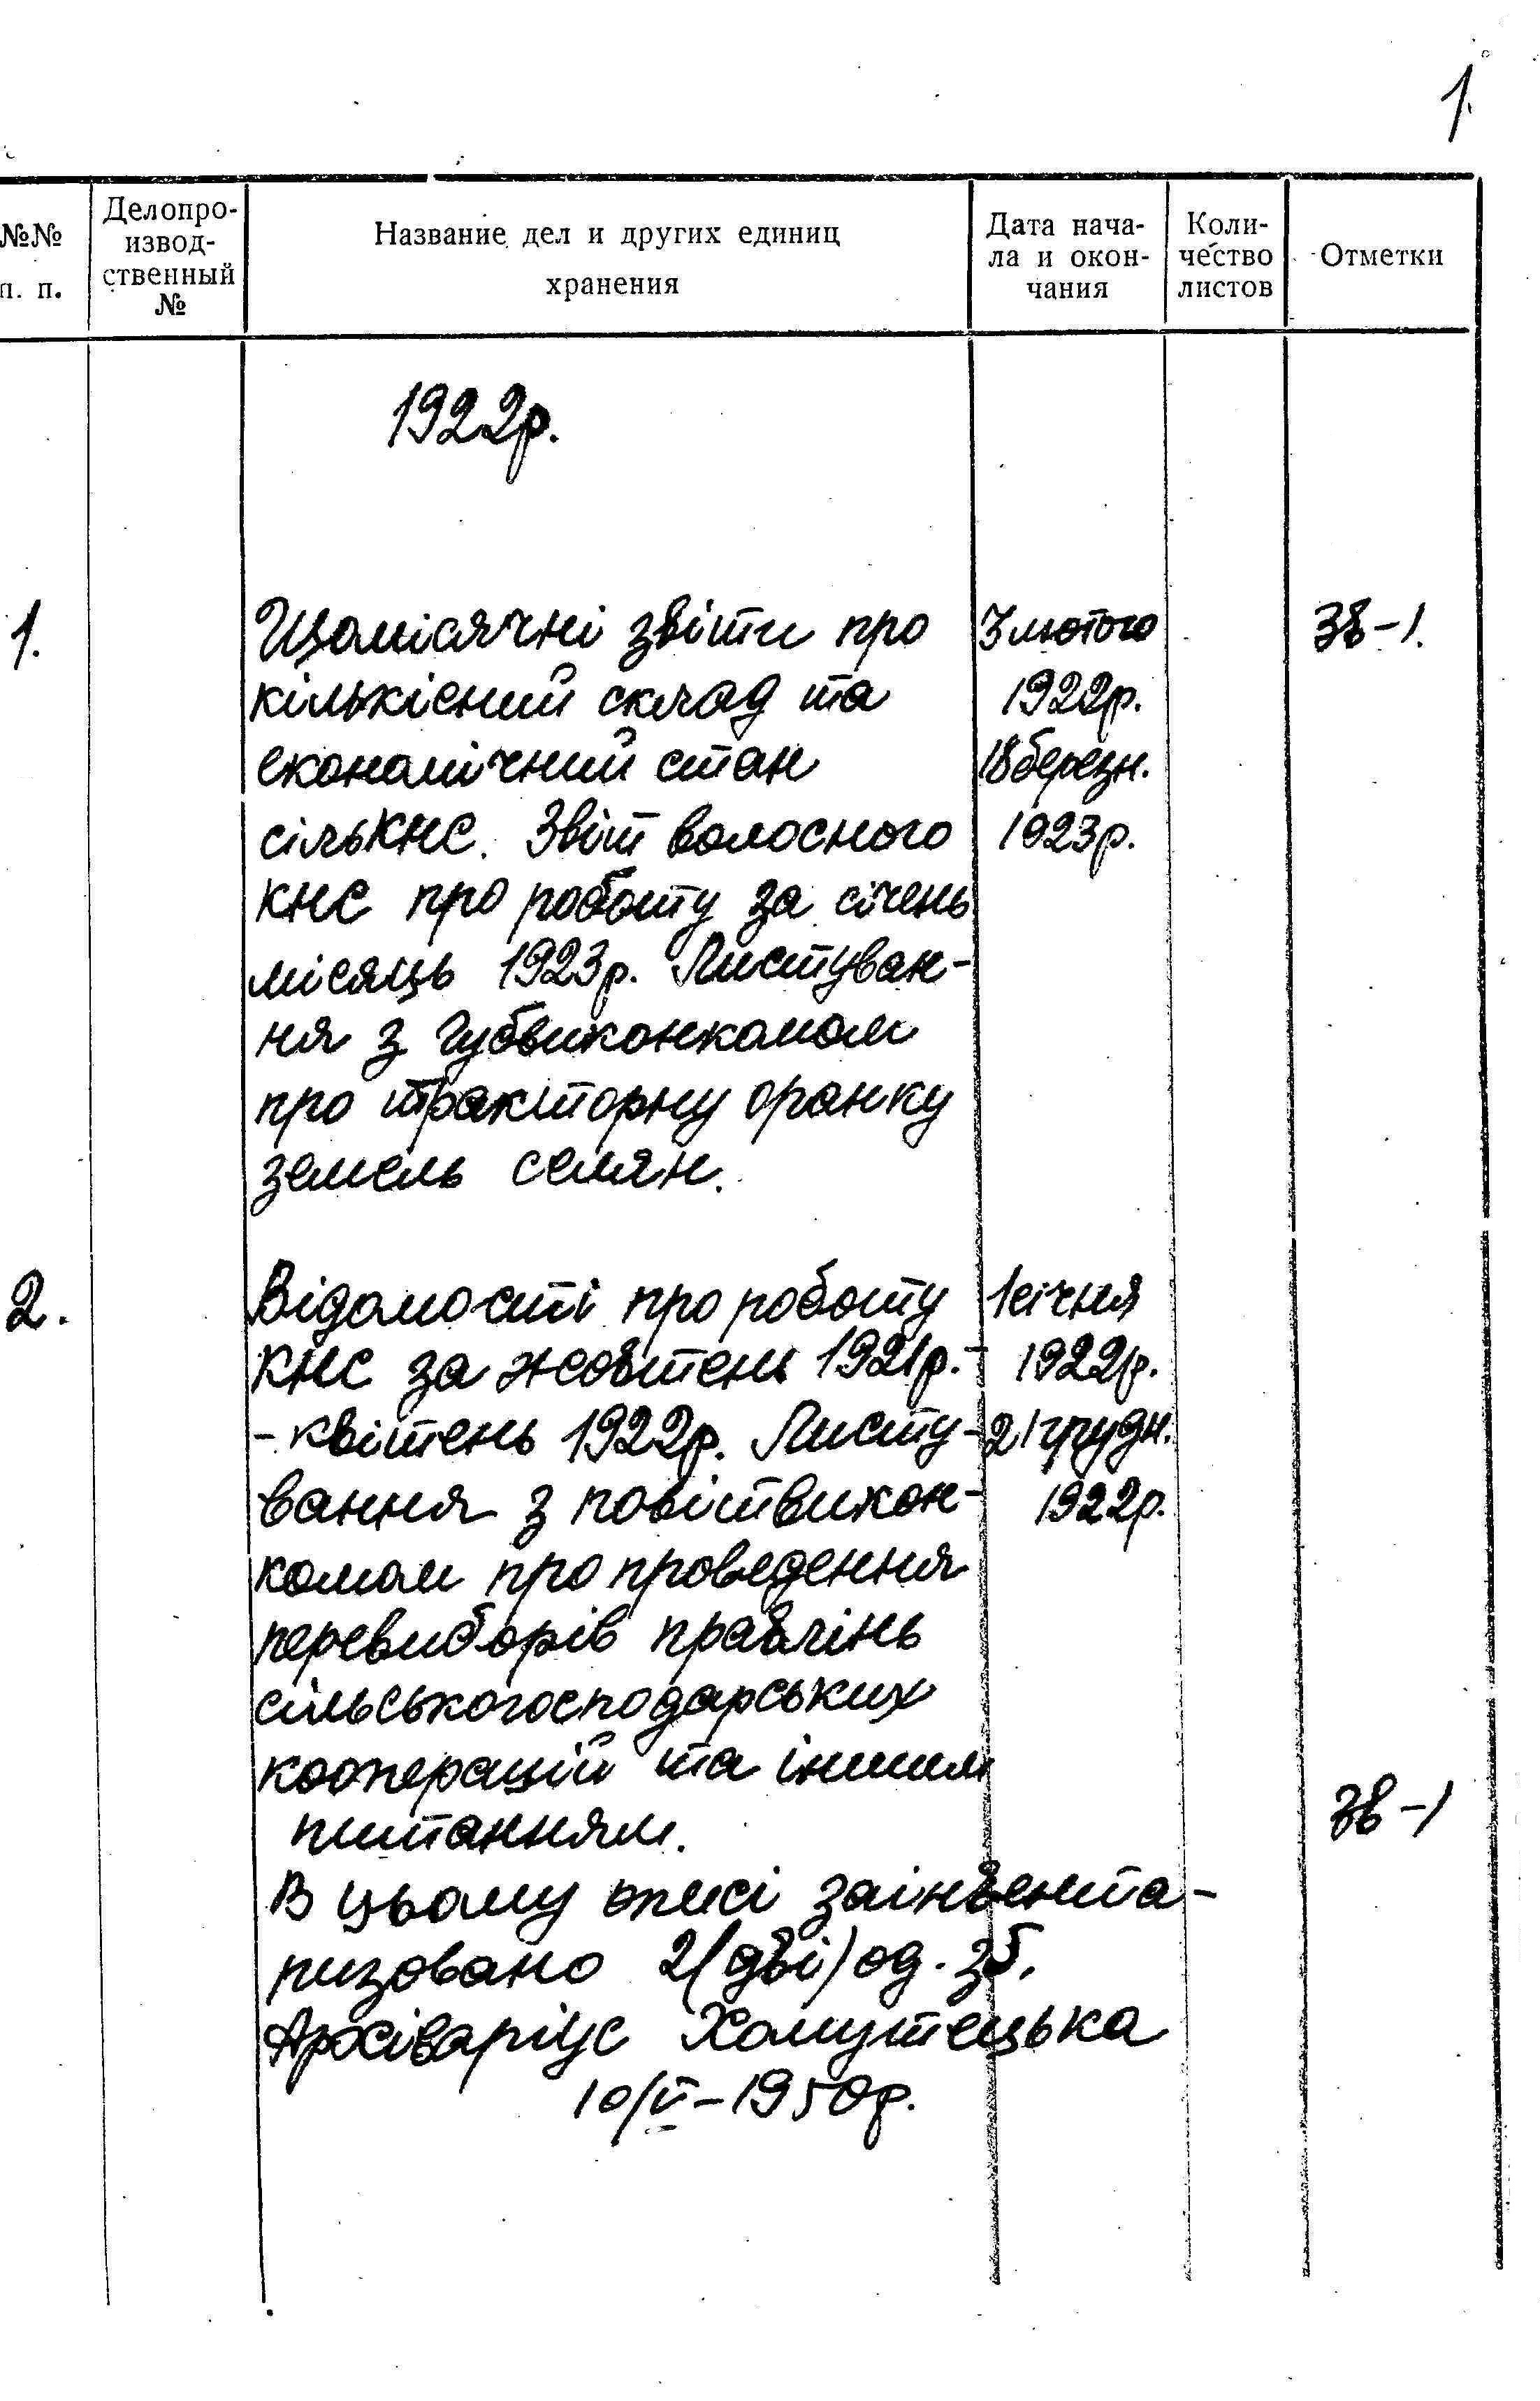 1.
№№ п. п.
Делопро-
извод-
ственный
№
Название дел и других единиц
хранения
Дата нача-
ла и окон-
чания
Коли-
чество
листов
Отметки
1922р.
1.
Щомісячні звіти про
кількісний склад та
економічний стан
сількнс. Звіт волосного
КНС про роботу за січень
місяць 1923р. Листуван-
ня з губвиконкомом
про тракторну оранку
земель селян.
3 лютого
1922р.
18 березн.
1923р.
Зв-1.
2.
Відомості про роботу
КНС за жовтень 1921р.-
- квітень 1922р. Листу-
вання з повітвикон-
комом про проведення
перевиборів правлінь
сільськогосподарських
кооперацій та іншим
питанням.
1 січня
1922р.
21 грудн.
1922р.
Зв-1
В цьому описі заінвента-
ризовано 2(дві) од. зб.
Архіваріус Хомутецька
10/V-1950р.